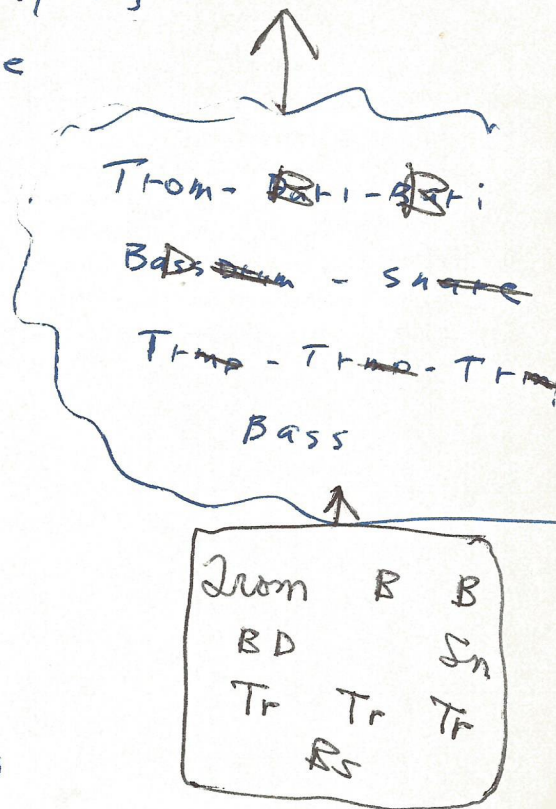 e
Trom - Bari - Bari
Bass Drum - Snare
Trmp - Trmp - Trmp
Bass
Trom B B
BD Sn
Tr Tr Tr
Bs